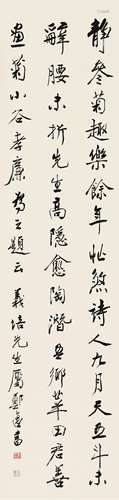 靜參菊趣樂餘年忙煞詩人九月天五斗未
辭腰未折先生高隱愈陶潛吾鄉田君善
畫菊小谷孝廉為之題云義培先生屬鄭書